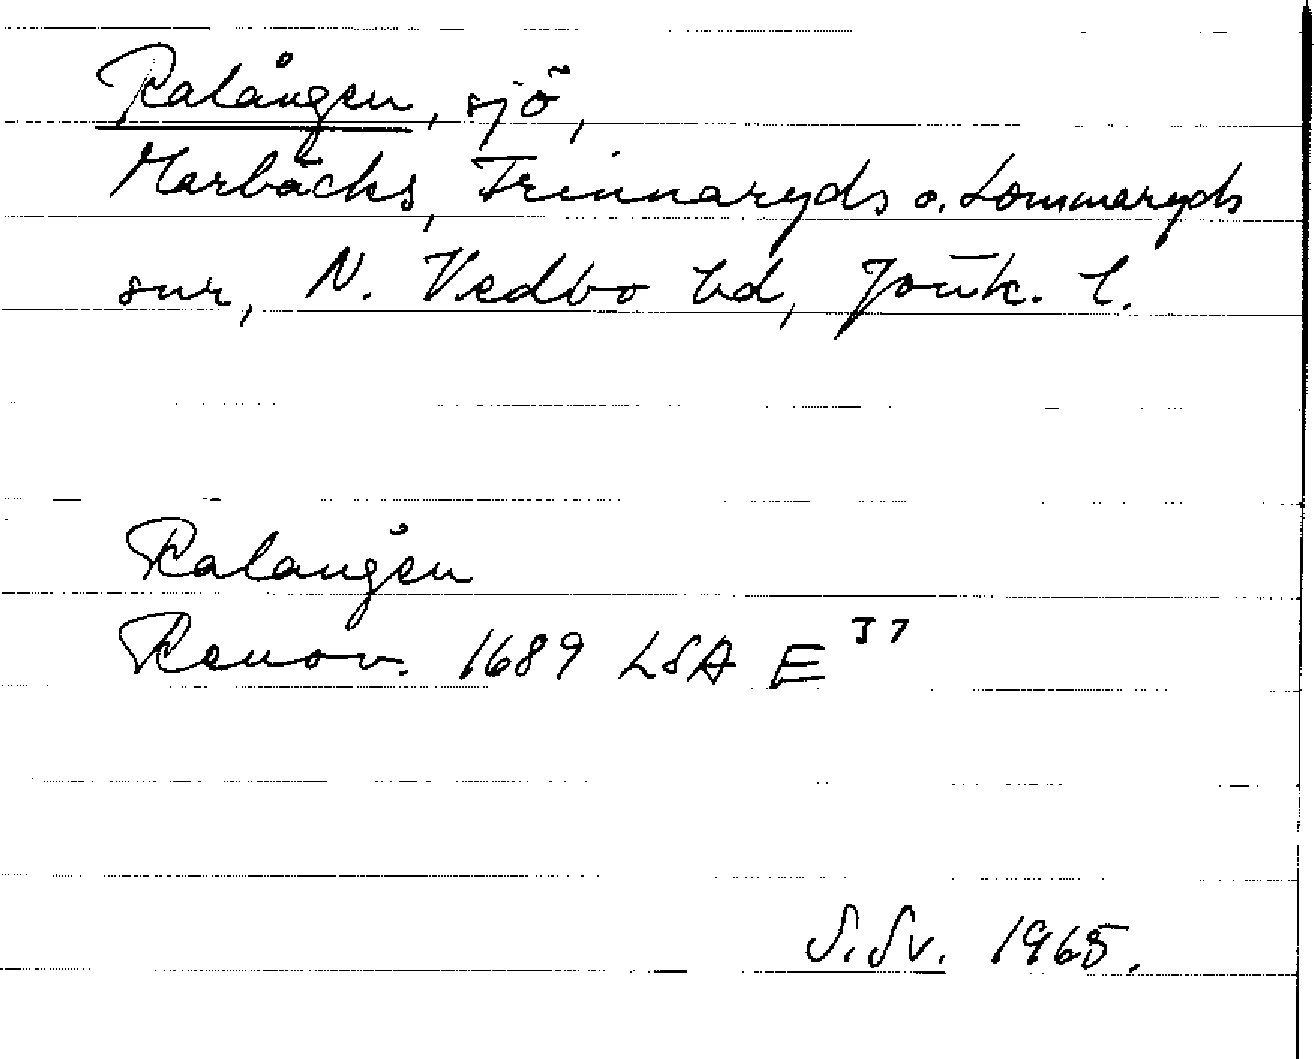 Ralången, sjö,
Marbäcks, Frinnaryds o. Lommaryds
snr, N. Vedbo hd, Jönk. l.
Ralången
Renov. 1689 LSA E 37
S. Sv. 1965.